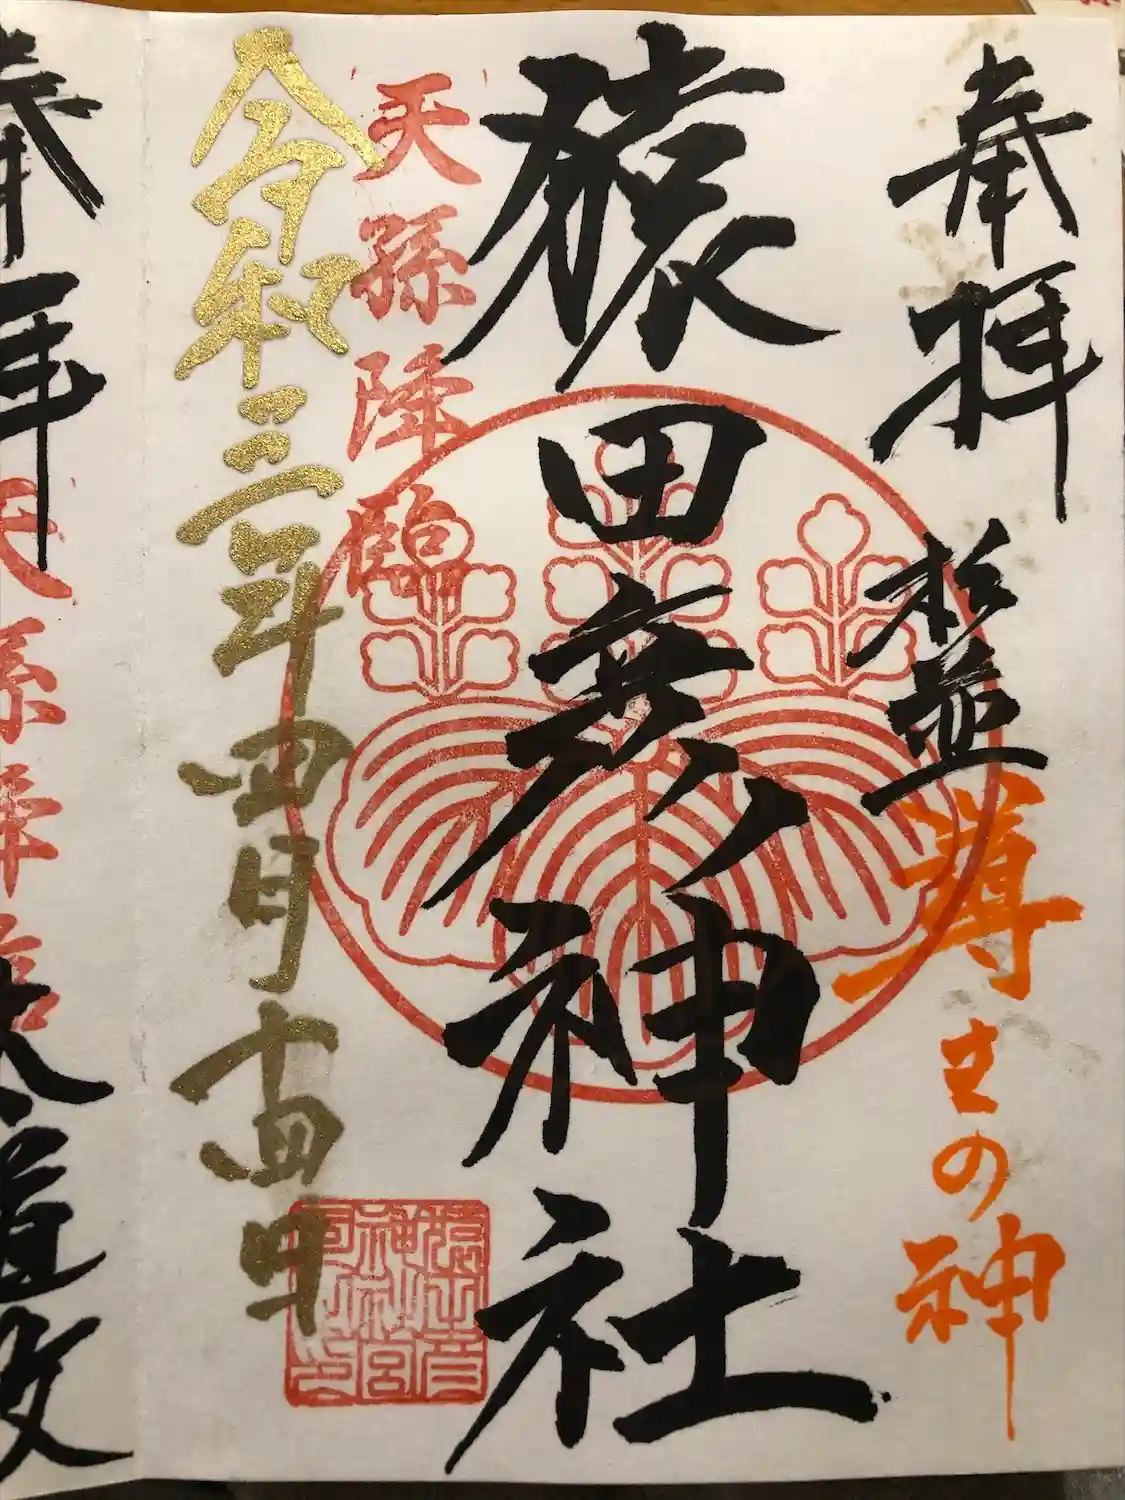 奉拝 杉並
導きの神
猿田彦神社
天孫降臨
令和三年四月十四日
猿田彦
神社宮
司之印
奉拝
天孫降臨